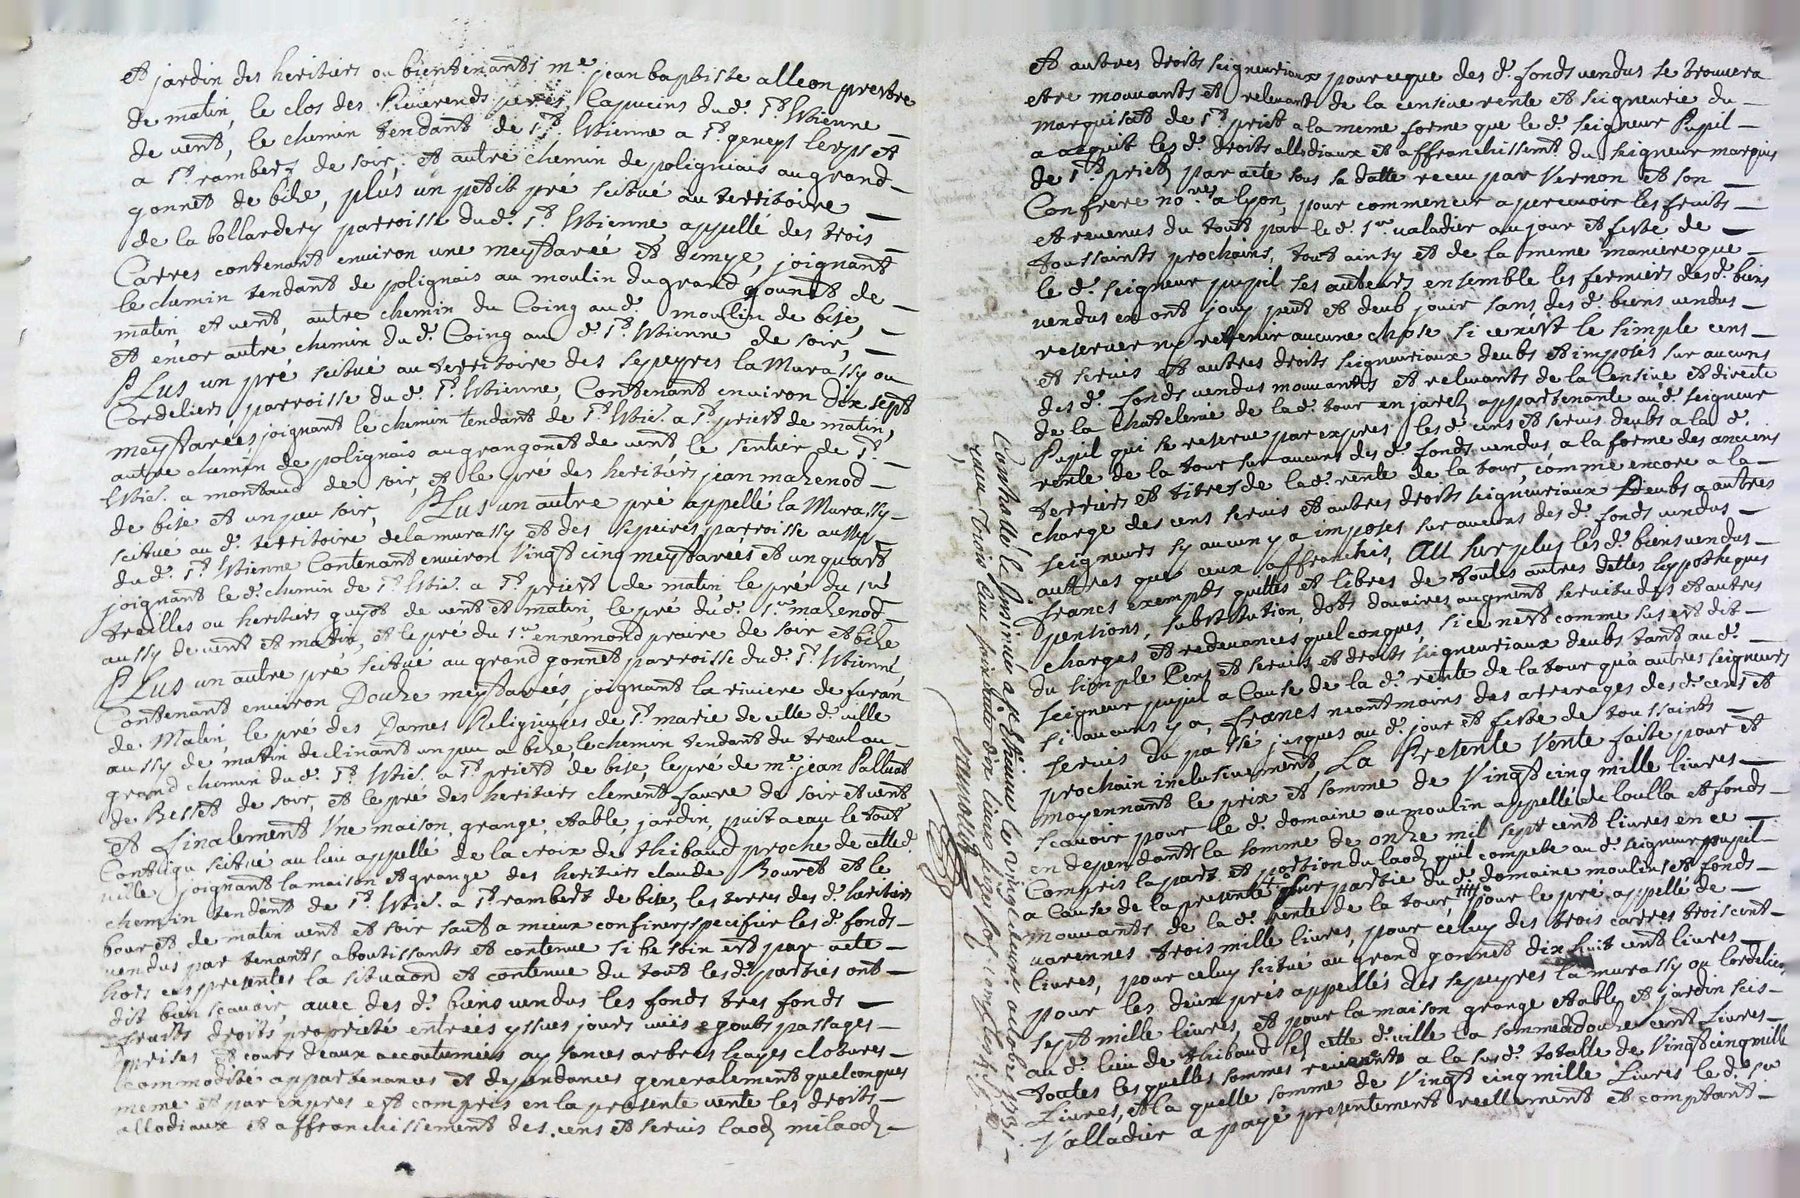 et jardin des heritiers ou bientenants me. jean baptiste alleon prestre
de matin, le clos des Reverends peres Capucins dud. st. Estienne
de vent, le chemin tendant de st. Estienne a st. geneys lerps et
a st. rambert de soir, et autre chemin de poligniais au grand
gonnet de bize, plus un petit pré scitué au territoire
de la bollardery parroisse dud. st. Estienne appellé des trois
Carres contenant environ une meytareé et demye, joignant
le chemin tendant de polignais au moulin du grand gounet de
matin, et vent, autre chemin du Coing aud. moulin de bise,
et encor autre chemin dud. Coing aud. st. Estienne de soir,
PLus un pré scitué au territoire des sepeyres la Murassy ou
Cordeliers parroisse dud. st. Estienne, Contenant environ dix sept
meytarées joignant le chemin tendant de st. Esti. a st. priest de matin,
autre chemin de polignais au grangonet de vent le sentier de st.
Esti. a montaud de soir, et le pré des heritiers jean mazenod
de bise et un peu soir, PLus un autre pré appellé la Murassy
scitué au d. territoire de la murassy et des sepeires parroisse aussy
dud. st. Estienne Contenant environ vingt cinq meytareés et un quart
joignant le d. chemin de st. Esti. a st. priest de matin le pré du sr.
treilles ou heritiers guyot de vent et matin, le pré dud. sr. mazenod
aussy de vent et matin, et le pré du sr. ennemond praire de soir et bize
PLus un autre pré scitué au grand gonnet parroisse dud. st. Estienne,
Contenant environ Douze meytareés, joignant la riviere de furan
de Matin, le pré des Dames Religieuses de ste. marie de cette d. ville
aussy de matin declinant un peu a bize, le chemin tendant du treul au
grand chemin dud. st. Esti. a st. priest de bise, le pré de me. jean Palluat
de Besset de soir, et le pré des heritiers clement faure de soir et vent
et finalement Une maison, grange, etable, jardin, puit a eau le tout
Contigu scitué au lieu appellé de la croix de thibaud proche de cette d.
ville joignant la maison et grange des heritiers claude Bouret et le
chemin tendant de st. Esti. a st. rambert de bise, les terres des d. heritiers
bouret de matin vent et soir sauf a mieux confiner specifier les d. fonds
vendus par tenants aboutissants et contenue si besoin est par acte
hors ces presentes la situaon et contenue du tout lesd. parties ont
dit bien scavoir, avec des d. biens vendus les fonds tres fonds
fruits droits proprieté entreés yssues jours vuës egouts passages
prises et cours deaux accoutumeés aysances arbres hayes clotures
commodités appartenances et dependances generalement quelconques
meme et par expres est compris en la presente vente les droits
allodiaux et affranchissement des cens et servis laods milaods
et autres droits seigneuriaux pour ce que des d. fonds vendus se trouvera
etre mouvants et relevant de la censive rente et seigneurie du
marquisat de st. priet a la meme forme que le d. seigneur Pupil
a acquit les d. droits allodiaux et affranchissemt. du seigneur marquis
de st. priet par acte sous sa datte receu par Vernon et son
Confrere nores. a lyon, pour commencer a percevoir les fruits
et revenus du tout par le d. sr. valadier au jour et feste de
toussaints prochains, tout ainsy et de la meme maniere que
le d. seigneur pupil ses auteurs ensemble les fermiers desd. biens
vendus en ont jouy peut et deub jouir sans, des d. biens vendus
reserver ny retenir aucune chose si ce nest le simple cens
et servis et autres droits seigneuriaux deubs et imposés sur aucuns
des d. fonds vendus mouvants et relevants de la Censive et directe
de la Chatelenie de la d. tour en jarez appartenante aud. seigneur
Pupil qui se reserve par expres les d. cens et servis deubs a la d.
rente de la tour sur aucuns des d. fonds vendus, a la forme des anciens
terriers et titres de la d. rente de la tour, comme encore a la
charge des cens servis et autres droits seigneuriaux deubs a autres
seigneurs sy aucun y a imposés sur aucuns des d. fonds vendus
autres que ceux affranchis, Au surplus les d. biens vendus
francs exempts quittes et libres de toutes autres dettes hypotheques
pentions, substitution, dots douaires augment servitudes et autres
charges et redevances quelconques, si ce nest comme sus est dit
du simple Cens et servis et droits seigneuriaux deubs tant au d.
seigneur pupil a Cause de la d. rente de la tour qua autres seigneurs
si aucuns y a, francs neantmoins des arrerages des d. cens et
servis du passé jusques au d. jour et feste de toussaints
prochain inclusivement La Presente Vente faite pour et
moyennant le prix et somme de Vingt cinq mille livres
scavoir pour le d. domaine ou moulin appellé de loulla et fonds
en dependants la somme de onze mil sept cent livres en ce
Compris la part et portion du laod quil compete au d. seigneur pupil
a Cause de la presente pour partie du d. domaine moulin et fonds
mouvants de la d. rente de la tour, pour le pré appellé de
varennes trois mille livres, pour celuy des trois carres trois cent
livres, pour celuy scitué au grand gonnet dix huit cent livres
pour les deux prés appellés des sepeyres la murassy ou Cordeliers
sept mille livres, et pour la maison grange etable et jardin scis
au d. lieu de thibaud lez cette d. ville la somme de douze cent livres
toutes les quelles sommes revienent a la susd. totalle de Vingt cinq mille
Livres, et la quelle somme de Vingt cinq mille Livres le d. sr.
Valladier a payé presentement reellement et comptant
Controllé le